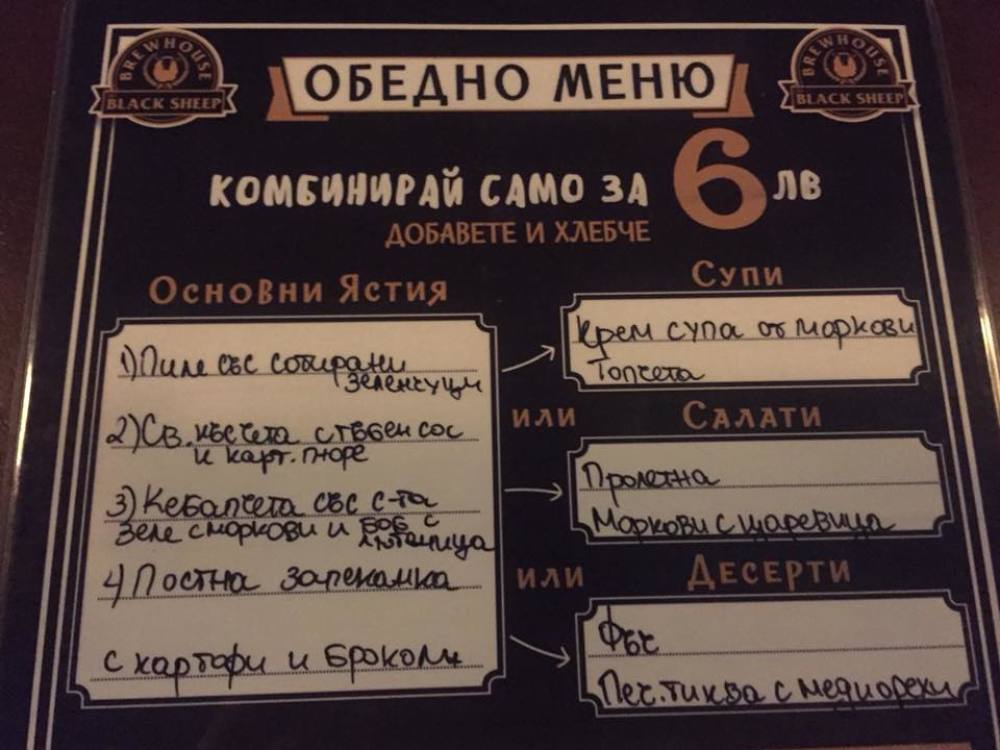 BREWHOUSE
BLACK SHEEP
ОБЕДНО МЕНЮ
BREWHOUSE
BLACK SHEEP
КОМБИНИРАЙ САМО ЗА 6 ЛВ
ДОБАВЕТЕ И ХЛЕБЧЕ
Основни Ястия
1) Пиле със сотирани
зеленчуци
2) Св. късчета с гъбен сос
и карт. пюре
3) Кебапчета със с-та
зеле с моркови и боб с
лютеница
4) Постна запеканка
с картофи и броколи
Супи
Крем супа от моркови
Топчета
или
Салати
Пролетна
Моркови с царевица
или
Десерти
Печ. тиква с мед и орехи